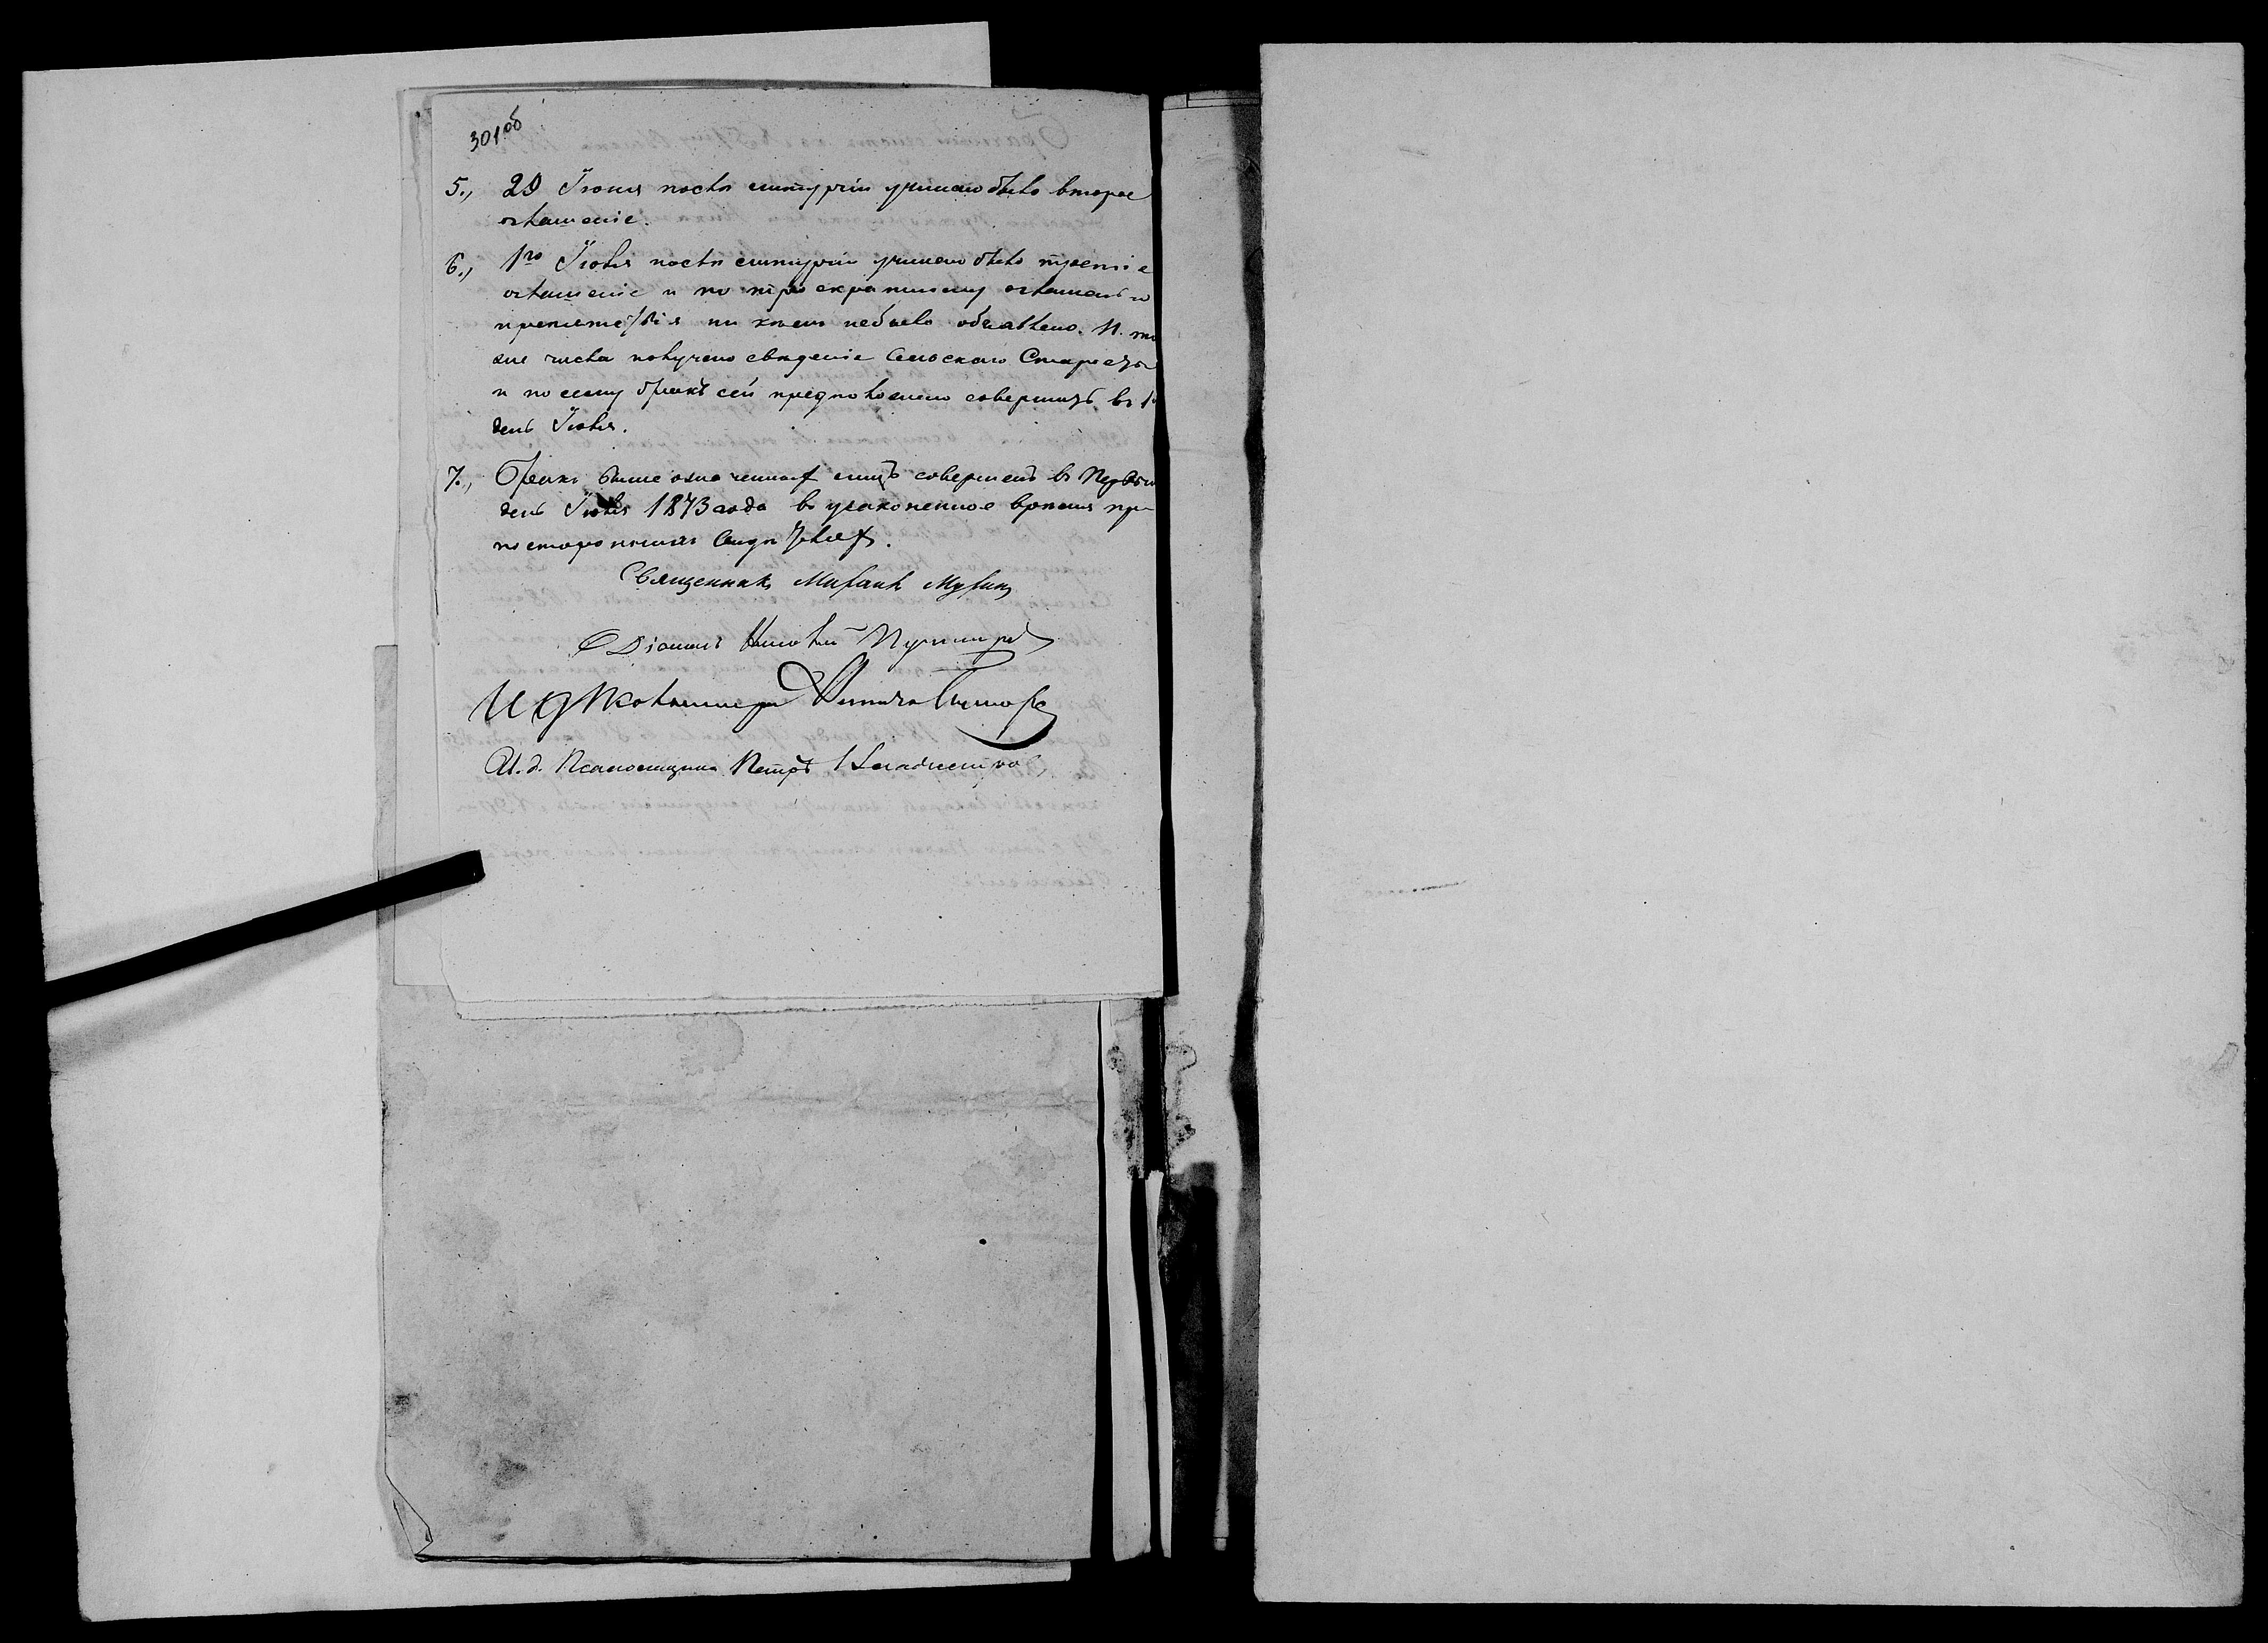 301об
5., 29 Іюня посли литургіи учинено было второе
оглашеніе.
6., 1го Іюля посли литургіи учинено было третіе
оглашеніе и по троекратному оглашенію
препятствія ни коего небыло объявлено. И. то
же числа получено свѣдѣніе Сельскаго Старосты
и по сему бракъ сей предположено совершить въ 1й
день Іюля.
7., Бракъ выше означенныхъ лицъ совершенъ въ Первый
день Іюля 1873 года въ узаконенное время при
постороннихъ Свидѣтелехъ.
Священникъ Михаилъ Мухинъ
Діаконъ
И Д Псаломщика
И. д. Псаломщика Петръ